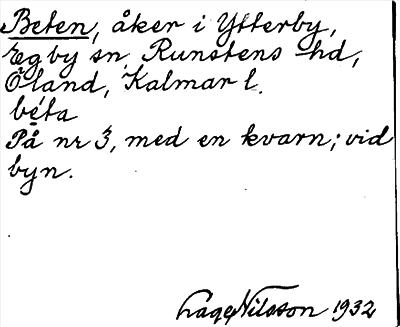 Beten, åker i Ytterby,
Egby sn, Runstens hd,
Öland, Kalmar l.
béta
På nr 3, med en kvarn; vid
byn.
Lage Nilsson 1932